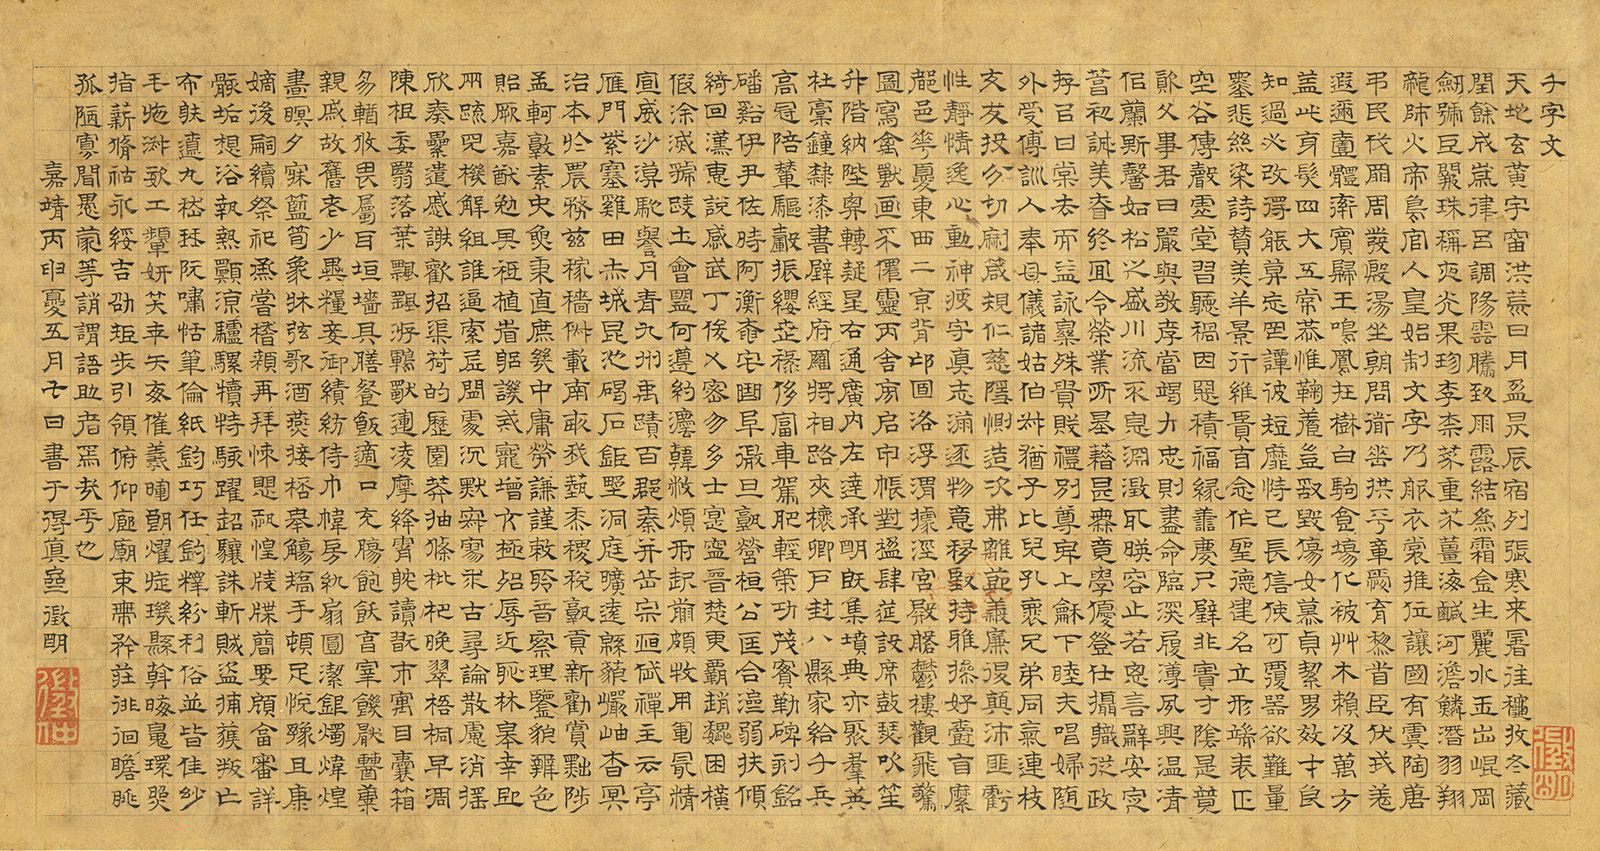 千字文
天地玄黃宇宙洪荒日月盈昃辰宿列張寒来暑往穐收冬藏
閏餘成歲律呂調陽雲騰致雨露結為霜金生麗水玉出崐岡
劒號巨闕珠稱夜光果珍李柰菜重芥薑海鹹河澹鱗潛羽翔
龍師火帝鳥官人皇始制文字乃服衣裳推位讓國有虞陶唐
弔民伐罪周發殷湯坐朝問道垂拱平章愛育黎首臣伏戎羌
遐邇壹體率賓歸王鳴鳳在樹白駒食場化被艸木賴及萬方
蓋此身髮四大五常恭惟鞠養豈敢毀傷女慕貞絜男效才良
知過必改得能莫忘罔譚彼短靡恃己長信使可覆器欲難量
墨悲絲染詩贊羔羊景行維賢克念作聖德建名立形端表正
空谷傳聲虛堂習聽禍因惡積福緣善慶尺璧非寶寸陰是競
資父事君曰嚴與敬孝當竭力忠則盡命臨深履薄夙興温凊
似蘭斯馨如松之盛川流不息淵澂取暎容止若思言辭安定
篤初誠美昚終宜令榮業所基藉甚無竟學優登仕攝職從政
存以甘棠去而益詠樂殊貴賤禮別尊卑上龢下睦夫唱婦隨
外受傅訓入奉母儀諸姑伯叔猶子比兒孔褱兄弟同氣連枝
交友投分切磨箴規仁慈隱惻造次弗離節義廉退顛沛匪虧
性靜情逸心動神疲守真志滿逐物意移堅持雅操好爵自縻
都邑華夏東西二京背邙面洛浮渭據涇宮殿盤鬱樓觀飛驚
圖寫禽獸畫采僊靈丙舍旁启甲帳對楹肆筵設席鼓瑟吹笙
升階納陛弁轉疑星右通廣內左達承明既集墳典亦聚羣英
杜稾鐘隸漆書壁經府羅將相路夾槐卿戶封八縣家給千兵
高冠陪輦驅轂振纓世祿侈富車駕肥輕策功茂實勒碑刻銘
磻谿伊尹佐時阿衡奄宅曲阜微旦孰營桓公匡合濟弱扶傾
綺回漢惠說感武丁俊乂密勿多士寔寧晉楚更霸趙魏困橫
假涂滅虢踐土會盟何遵約灋韓敝煩刑起翦頗牧用軍最精
宣威沙漠馳譽丹青九州禹蹟百郡秦并岱宗恒岱禪主云亭
雁門紫塞雞田赤城昆池碣石鉅野洞庭曠遠緜邈巖岫杳冥
治本於農務茲稼穡俶載南畝我蓺黍稷稅孰貢新勸賞黜陟
孟軻敦素史魚秉直庶幾中庸勞謙謹敕聆音察理鑒貌辨色
貽厥嘉猷勉其祗植省躬譏戒寵增亢極殆辱近恥林皋幸即
兩疏見機解組誰逼索居閒處沉默寂寥求古尋論散慮消搖
欣奏纍遣慼謝歡招渠荷的歷園莽抽條枇杷晚翠梧桐早凋
陳根委翳落葉飄颻游鵾獨運凌摩絳霄耽讀翫市寓目囊箱
易輶攸畏屬耳垣墻具膳餐飯適口充腸飽飫亯宰饑厭糟糠
親戚故舊老少異糧妾御績紡侍巾帷房紈扇圓潔銀燭煒煌
晝暝夕寐藍筍象牀弦歌酒燕接杯舉觴矯手頓足悅豫且康
嫡後嗣續祭祀烝嘗稽顙再拜悚愳恐惶牋牒簡要顧畣審詳
骸垢想浴執熱願涼驢騾犢特駭躍超驤誅斬賊盜捕獲叛亡
布射遼丸嵇琴阮嘯恬筆倫紙鈞巧任釣釋紛利俗並皆佳妙
毛施淑姿工顰妍笑年矢每催羲暉朗燿琁璣縣斡晦魄環照
指薪脩祜永綏吉劭矩步引領俯仰廊廟束帶矜莊徘徊瞻眺
孤陋寡聞愚蒙等誚謂語助者焉哉乎也
嘉靖丙申夏五月七日書于得真堂 澂明